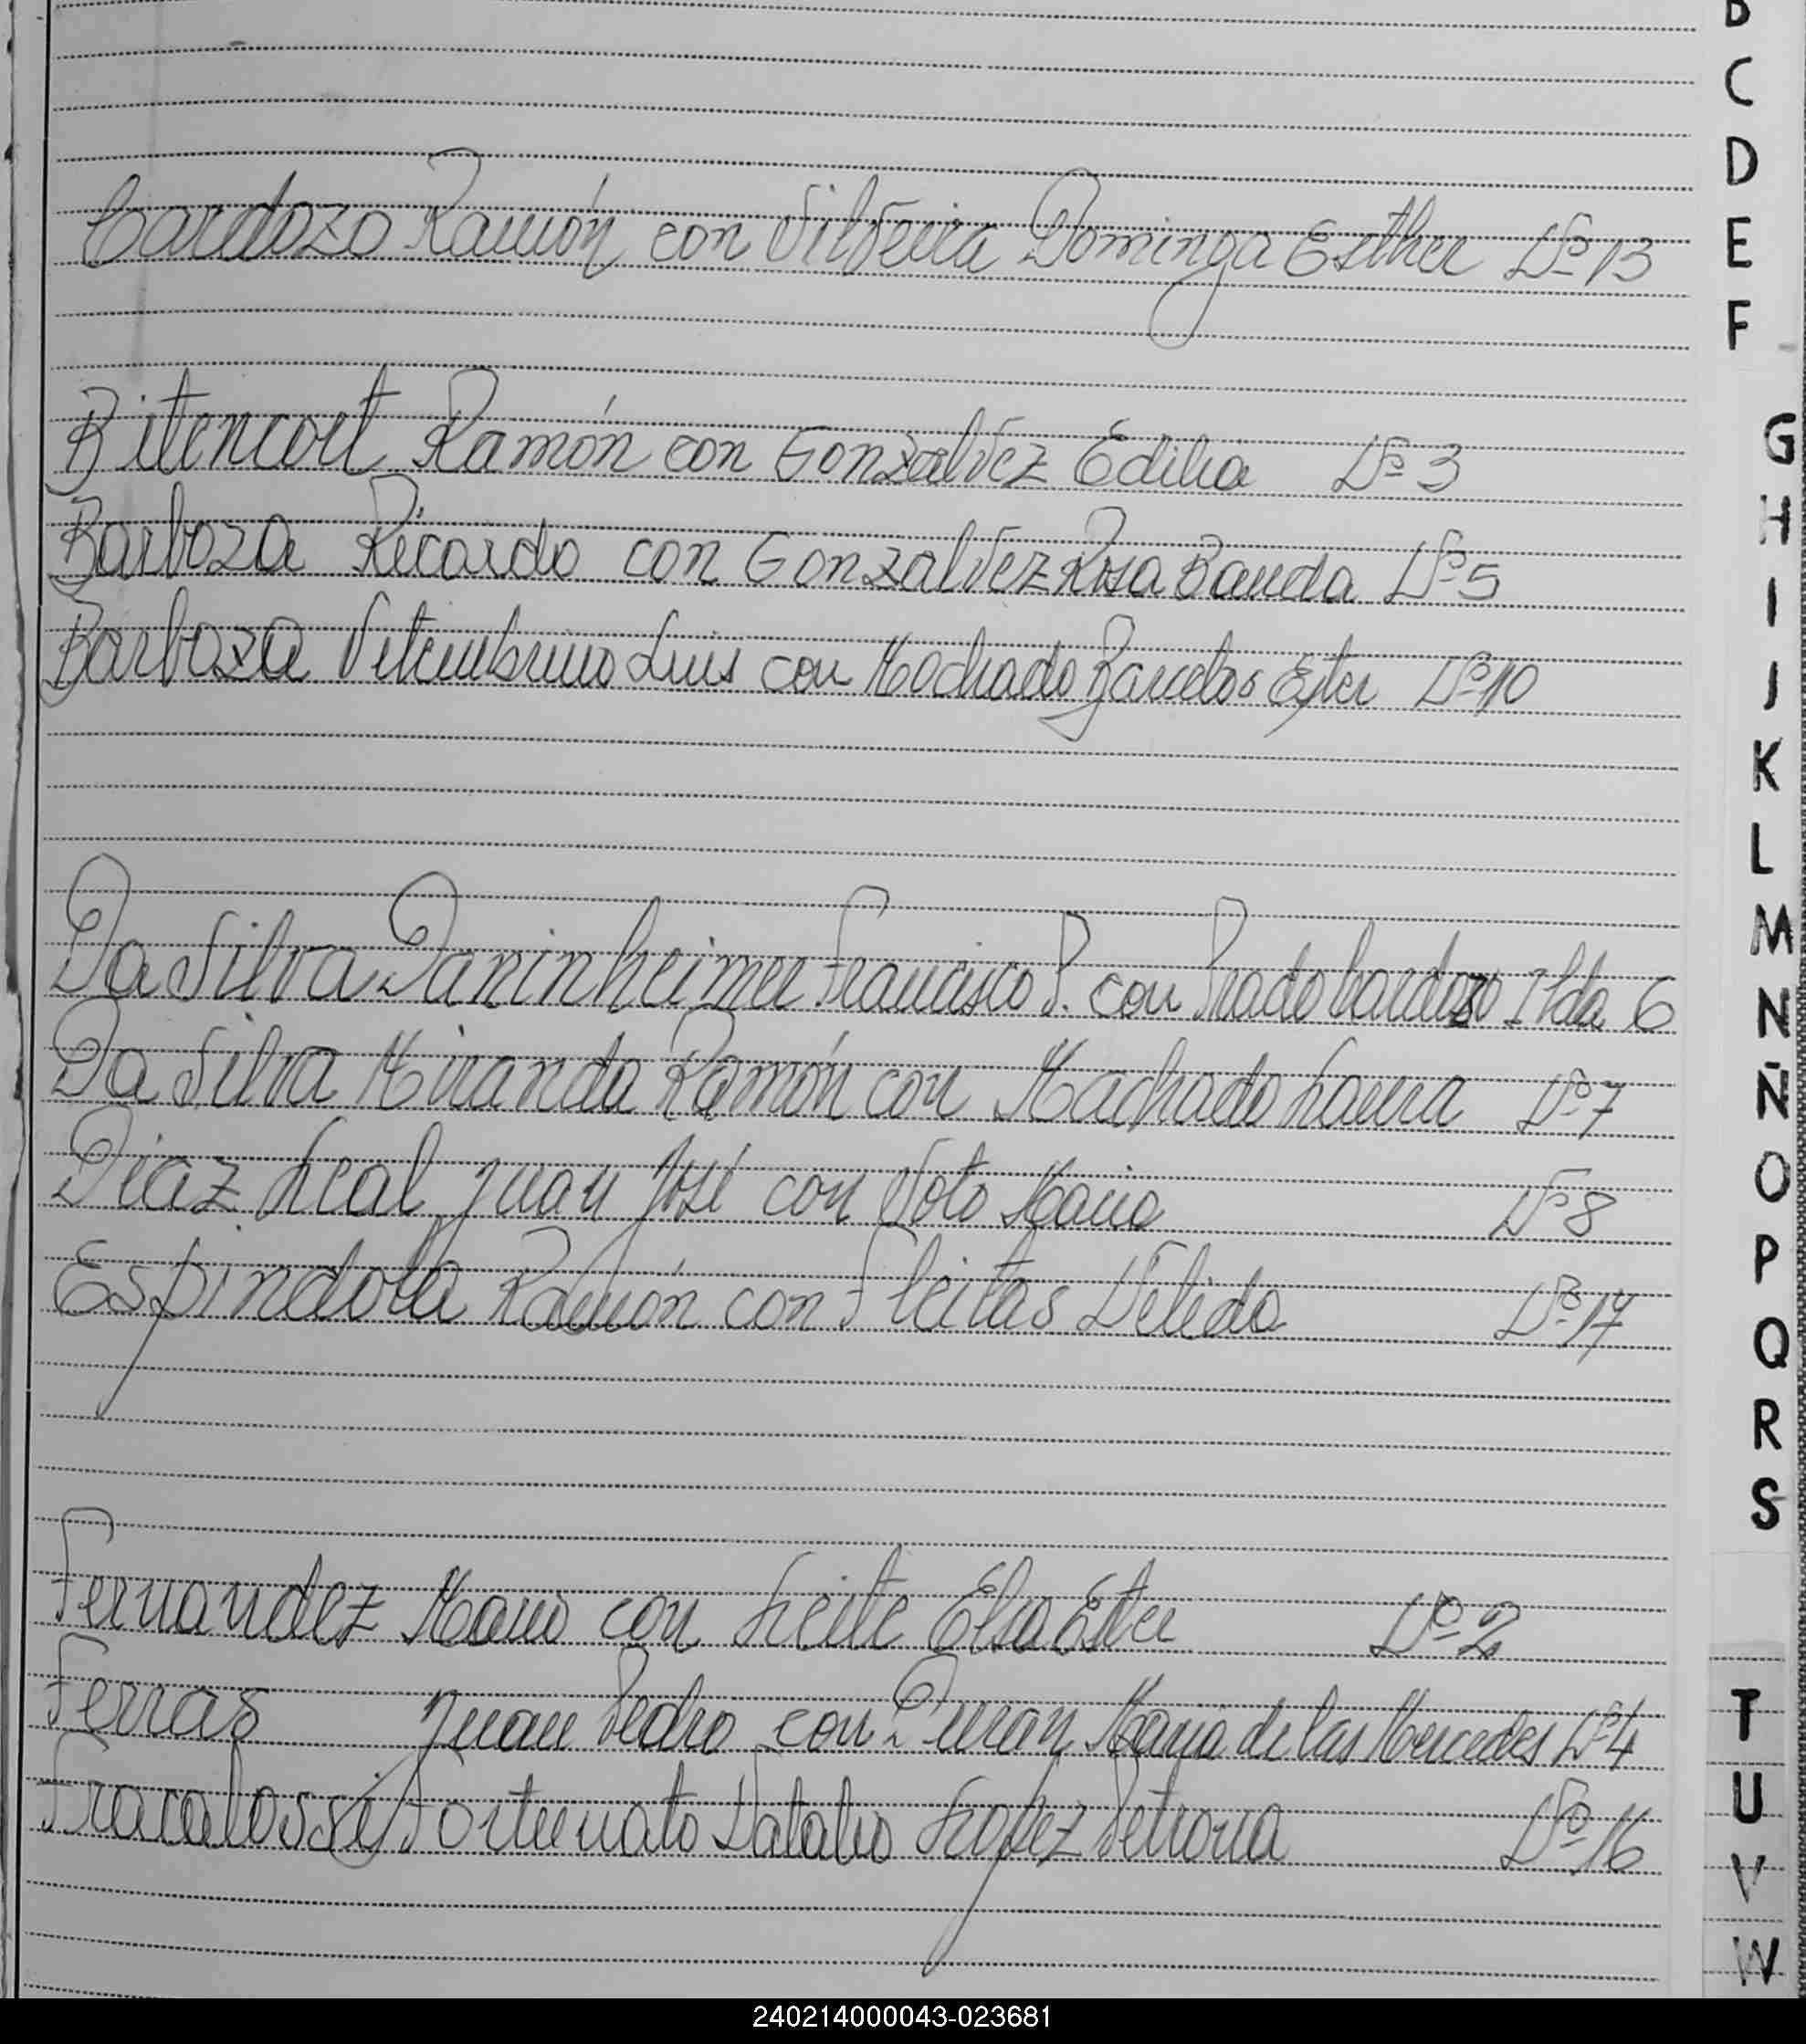 B
C
D
E
F
G
H
I
J
K
L
M
N
Ñ
O
P
Q
R
S
T
U
V
W
Cardozo Ramón con Silveira Dominga Esther Nº 13
Bitencort Ramón con Gonzalvez Edilia Nº 3
Barboza Ricardo con Gonzalvez Rosa Banda Nº 5
Barboza Setembrino Luis con Machado Barcelos Ester Nº 10
Da Silva Daninheimer Francisco P. con Prado Cardozo Ilda 6
Da Silva Miranda Ramón con Machado Laura Nº 7
Diaz Leal Juan José con Soto Maria Nº 8
Espindola Ramón con Fleitas Nelida Nº 17
Fernandez Mario con Leite Elsa Ester Nº 2
Ferras Juan Pedro con Duran Maria de las Mercedes Nº 4
Fracalossi Fortunato Natalio Lopez Petrona Nº 16
240214000043-023681